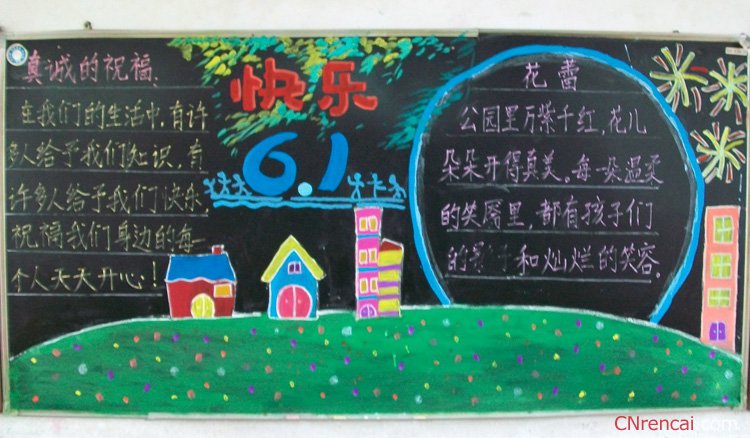 真诚的祝福.
在我们的生活中，有许
多人给予我们知识，有
许多人给予我们快乐.
祝福我们身边的每一
个人天天开心！
快乐
6.1
花蕾
公园里万紫千红，花儿
朵朵开得真美。每一朵温柔
的笑厴里，都有孩子们
的 和灿烂的笑容.
CNrencai.com